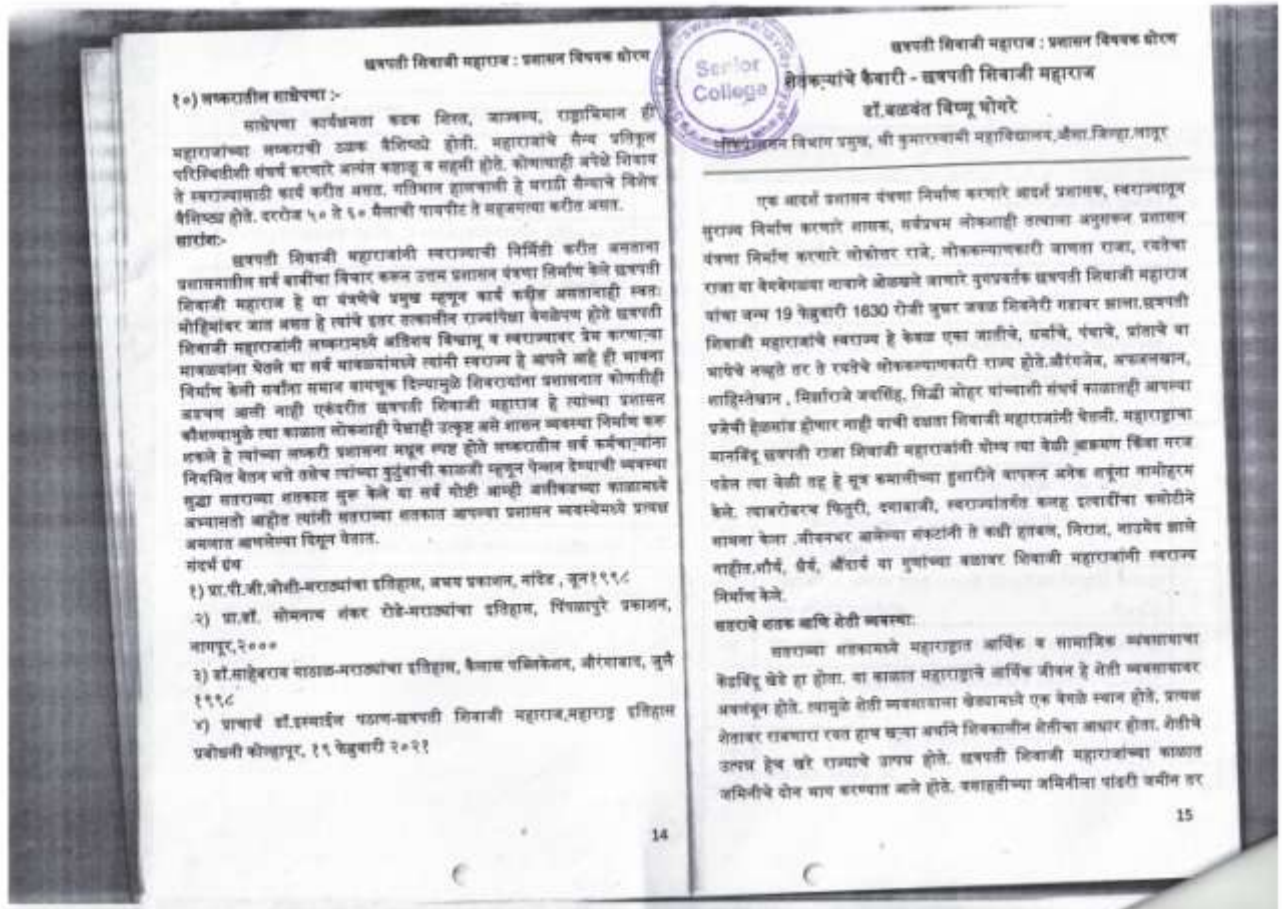 छत्रपती शिवाजी महाराज : प्रशासन विषयक धोरण
१०) लष्करातील साधेपणा :-
साधेपणा कार्यक्षमता कडक शिस्त, जाज्वल्य, राष्ट्राभिमान ही
महाराजांच्या लष्कराची ठळक वैशिष्ठ्ये होती. महाराजांचे सैन्य प्रतिकूल
परिस्थितीशी संघर्ष करणारे अत्यंत कष्टाळू व साहसी होते. कोणत्याही अपेक्षे शिवाय
ते स्वराज्यासाठी कार्य करीत असत. गतिमान हालचाली हे मराठी सैन्याचे विशेष
वैशिष्ठ्य होते. दररोज ५० ते ६० मैलाची पायपीट ते सहजगत्या करीत असत.
सारांश:-
छत्रपती शिवाजी महाराजांनी स्वराज्याची निर्मिती करीत असताना
प्रशासनातील सर्व बाबींचा विचार करून उत्तम प्रशासन यंत्रणा निर्माण केले छत्रपती
शिवाजी महाराज हे या यंत्रणेचे प्रमुख म्हणून कार्य करीत असतानाही स्वतः
मोहिमांवर जात असत हे त्यांचे इतर तत्कालीन राज्यांपेक्षा वेगळेपण होते छत्रपती
शिवाजी महाराजांनी लष्करामध्ये अतिशय विश्वासू व स्वराज्यावर प्रेम करणाऱ्या
मावळ्यांना घेतले या सर्व मावळ्यांमध्ये त्यांनी स्वराज्य हे आपले आहे ही भावना
निर्माण केली सर्वांना समान वागणूक दिल्यामुळे शिवरायांना प्रशासनात कोणतीही
अडचण आली नाही एकंदरीत छत्रपती शिवाजी महाराज हे त्यांच्या प्रशासन
कौशल्यामुळे त्या काळात लोकशाही पेक्षाही उत्कृष्ट असे शासन व्यवस्था निर्माण करू
शकले हे त्यांच्या लष्करी प्रशासना मधून स्पष्ट होते लष्करातील सर्व कर्मचाऱ्यांना
नियमित वेतन भत्ते तसेच त्यांच्या कुटुंबाची काळजी म्हणून पेन्शन देण्याची व्यवस्था
सुद्धा सतराव्या शतकात सुरू केले या सर्व गोष्टी आम्ही अलीकडच्या काळामध्ये
अभ्यासतो आहोत त्यांनी सतराव्या शतकात आपल्या प्रशासन व्यवस्थेमध्ये प्रत्यक्ष
अमलात आणलेल्या दिसून येतात.
संदर्भ ग्रंथ
१) प्रा.पी.जी.जोशी-मराठ्यांचा इतिहास, अभय प्रकाशन, नांदेड , जून१९९८
२) प्रा.डॉ. सोमनाथ शंकर रोडे-मराठ्यांचा इतिहास, पिंपळापुरे प्रकाशन,
नागपूर,२०००
३) डॉ.साहेबराव गाठाळ-मराठ्यांचा इतिहास, कैलास पब्लिकेशन, औरंगाबाद, जुलै
१९९८
४) प्राचार्य डॉ.इस्माईल पठाण-छत्रपती शिवाजी महाराज,महाराष्ट्र इतिहास
प्रबोधनी कोल्हापूर, १९ फेब्रुवारी २०२१
14
Senior
College
छत्रपती शिवाजी महाराज : प्रशासन विषयक धोरण
शेतकऱ्यांचे कैवारी - छत्रपती शिवाजी महाराज
डॉ.बळवंत विष्णू भोगरे
लोकप्रशासन विभाग प्रमुख, श्री कुमारस्वामी महाविद्यालय,औसा.जिल्हा.लातूर
एक आदर्श प्रशासन यंत्रणा निर्माण करणारे आदर्श प्रशासक, स्वराज्यातून
सुराज्य निर्माण करणारे शासक, सर्वप्रथम लोकशाही तत्वाला अनुसरून प्रशासन
यंत्रणा निर्माण करणारे लोकोत्तर राजे, लोककल्याणकारी जाणता राजा, रयतेचा
राजा या वेगवेगळ्या नावाने ओळखले जाणारे युगप्रवर्तक छत्रपती शिवाजी महाराज
यांचा जन्म 19 फेब्रुवारी 1630 रोजी जुन्नर जवळ शिवनेरी गडावर झाला.छत्रपती
शिवाजी महाराजांचे स्वराज्य हे केवळ एका जातीचे, धर्माचे, पंथाचे, प्रांताचे वा
भाषेचे नव्हते तर ते रयतेचे लोककल्याणकारी राज्य होते.औरंगजेब, अफजलखान,
शाहिस्तेखान , मिर्झाराजे जयसिंह, सिद्धी जोहर यांच्याशी संघर्ष काळातही आपल्या
प्रजेची हेळसांड होणार नाही याची दक्षता शिवाजी महाराजांनी घेतली. महाराष्ट्राचा
मानबिंदू छत्रपती राजा शिवाजी महाराजांनी योग्य त्या वेळी आक्रमण किंवा गरज
पडेल त्या वेळी तह हे सूत्र कमालीच्या हुशारीने वापरून अनेक शत्रूंना नामोहरम
केले. त्याबरोबरच फितुरी, दगाबाजी, स्वराज्यांतर्गत कलह इत्यादींचा कसोटीने
सामना केला .जीवनभर आलेल्या संकटांनी ते कधी हतबल, निराश, नाउमेद झाले
नाहीत.शौर्य, धैर्य, औदार्य या गुणांच्या बळावर शिवाजी महाराजांनी स्वराज्य
निर्माण केले.
सतरावे शतक आणि शेती व्यवस्था:
सतराव्या शतकामध्ये महाराष्ट्रात आर्थिक व सामाजिक व्यवसायाचा
केंद्रबिंदू खेडे हा होता. या काळात महाराष्ट्राचे आर्थिक जीवन हे शेती व्यवसायावर
अवलंबून होते. त्यामुळे शेती व्यवसायाला खेड्यामध्ये एक वेगळे स्थान होते. प्रत्यक्ष
शेतावर राबणारा रयत हाच खऱ्या अर्थाने शिवकालीन शेतीचा आधार होता. शेतीचे
उत्पन्न हेच खरे राज्याचे उत्पन्न होते. छत्रपती शिवाजी महाराजांच्या काळात
जमिनीचे दोन भाग करण्यात आले होते. वसाहतीच्या जमिनीला पांढरी जमीन तर
15